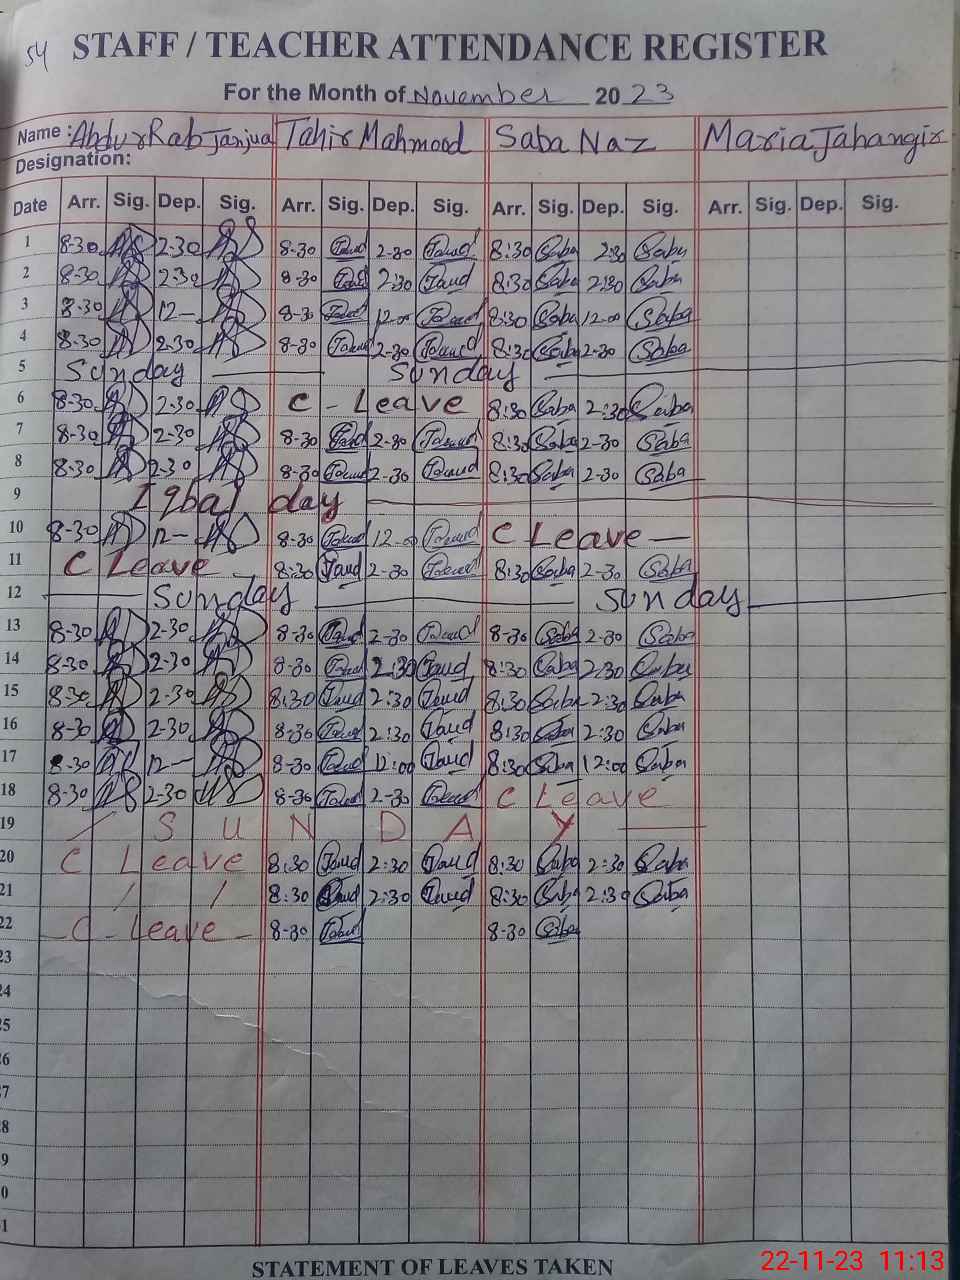 54
STAFF / TEACHER ATTENDANCE REGISTER
For the Month of November 2023
Name : Abdur Rab Janjua Tahir Mahmood Saba Naz Maria Jahangir
Designation:
Date Arr. Sig. Dep. Sig. Arr. Sig. Dep. Sig. Arr. Sig. Dep. Sig. Arr. Sig. Dep. Sig.
1 8-30 2-30 8-30 2-30 8:30 Saba 2:30 Saba
2 8-30 2-30 8-30 2:30 8:30 Saba 2:30 Saba
3 8-30 12- 8-30 12-00 8:30 Saba 12-00 Saba
4 8-30 2-30 8-30 2-30 8:30 Saba 2-30 Saba
5 Sunday Sunday
6 8-30 2-30 C - Leave 8:30 Saba 2:30 Saba
7 8-30 2-30 8-30 2-30 8:30 Saba 2-30 Saba
8 8-30 2-30 8-30 2-30 8:30 Saba 2-30 Saba
9 Iqbal day
10 8-30 12- 8-30 12-00 C Leave
11 C Leave 8:30 2-30 8:30 Saba 2-30 Saba
12 Sunday Sunday
13 8-30 2-30 8-30 2-30 8-30 Saba 2-30 Saba
14 8-30 2-30 8-30 2:30 8:30 Saba 2:30 Saba
15 8-30 2-30 8:30 2:30 8:30 Saba 2:30 Saba
16 8-30 2-30 8-30 2:30 8:30 Saba 2:30 Saba
17 8-30 12- 8-30 12:00 8:30 Saba 12:00 Saba
18 8-30 2-30 8-30 2-30 C Leave
19 / SUNDAY
20 C Leave 8:30 2:30 8:30 Saba 2:30 Saba
21 / / 8:30 2:30 8:30 Saba 2:30 Saba
22 - C - Leave - 8-30 8-30 Saba
23
24
25
26
27
28
29
30
31
STATEMENT OF LEAVES TAKEN
22-11-23 11:13